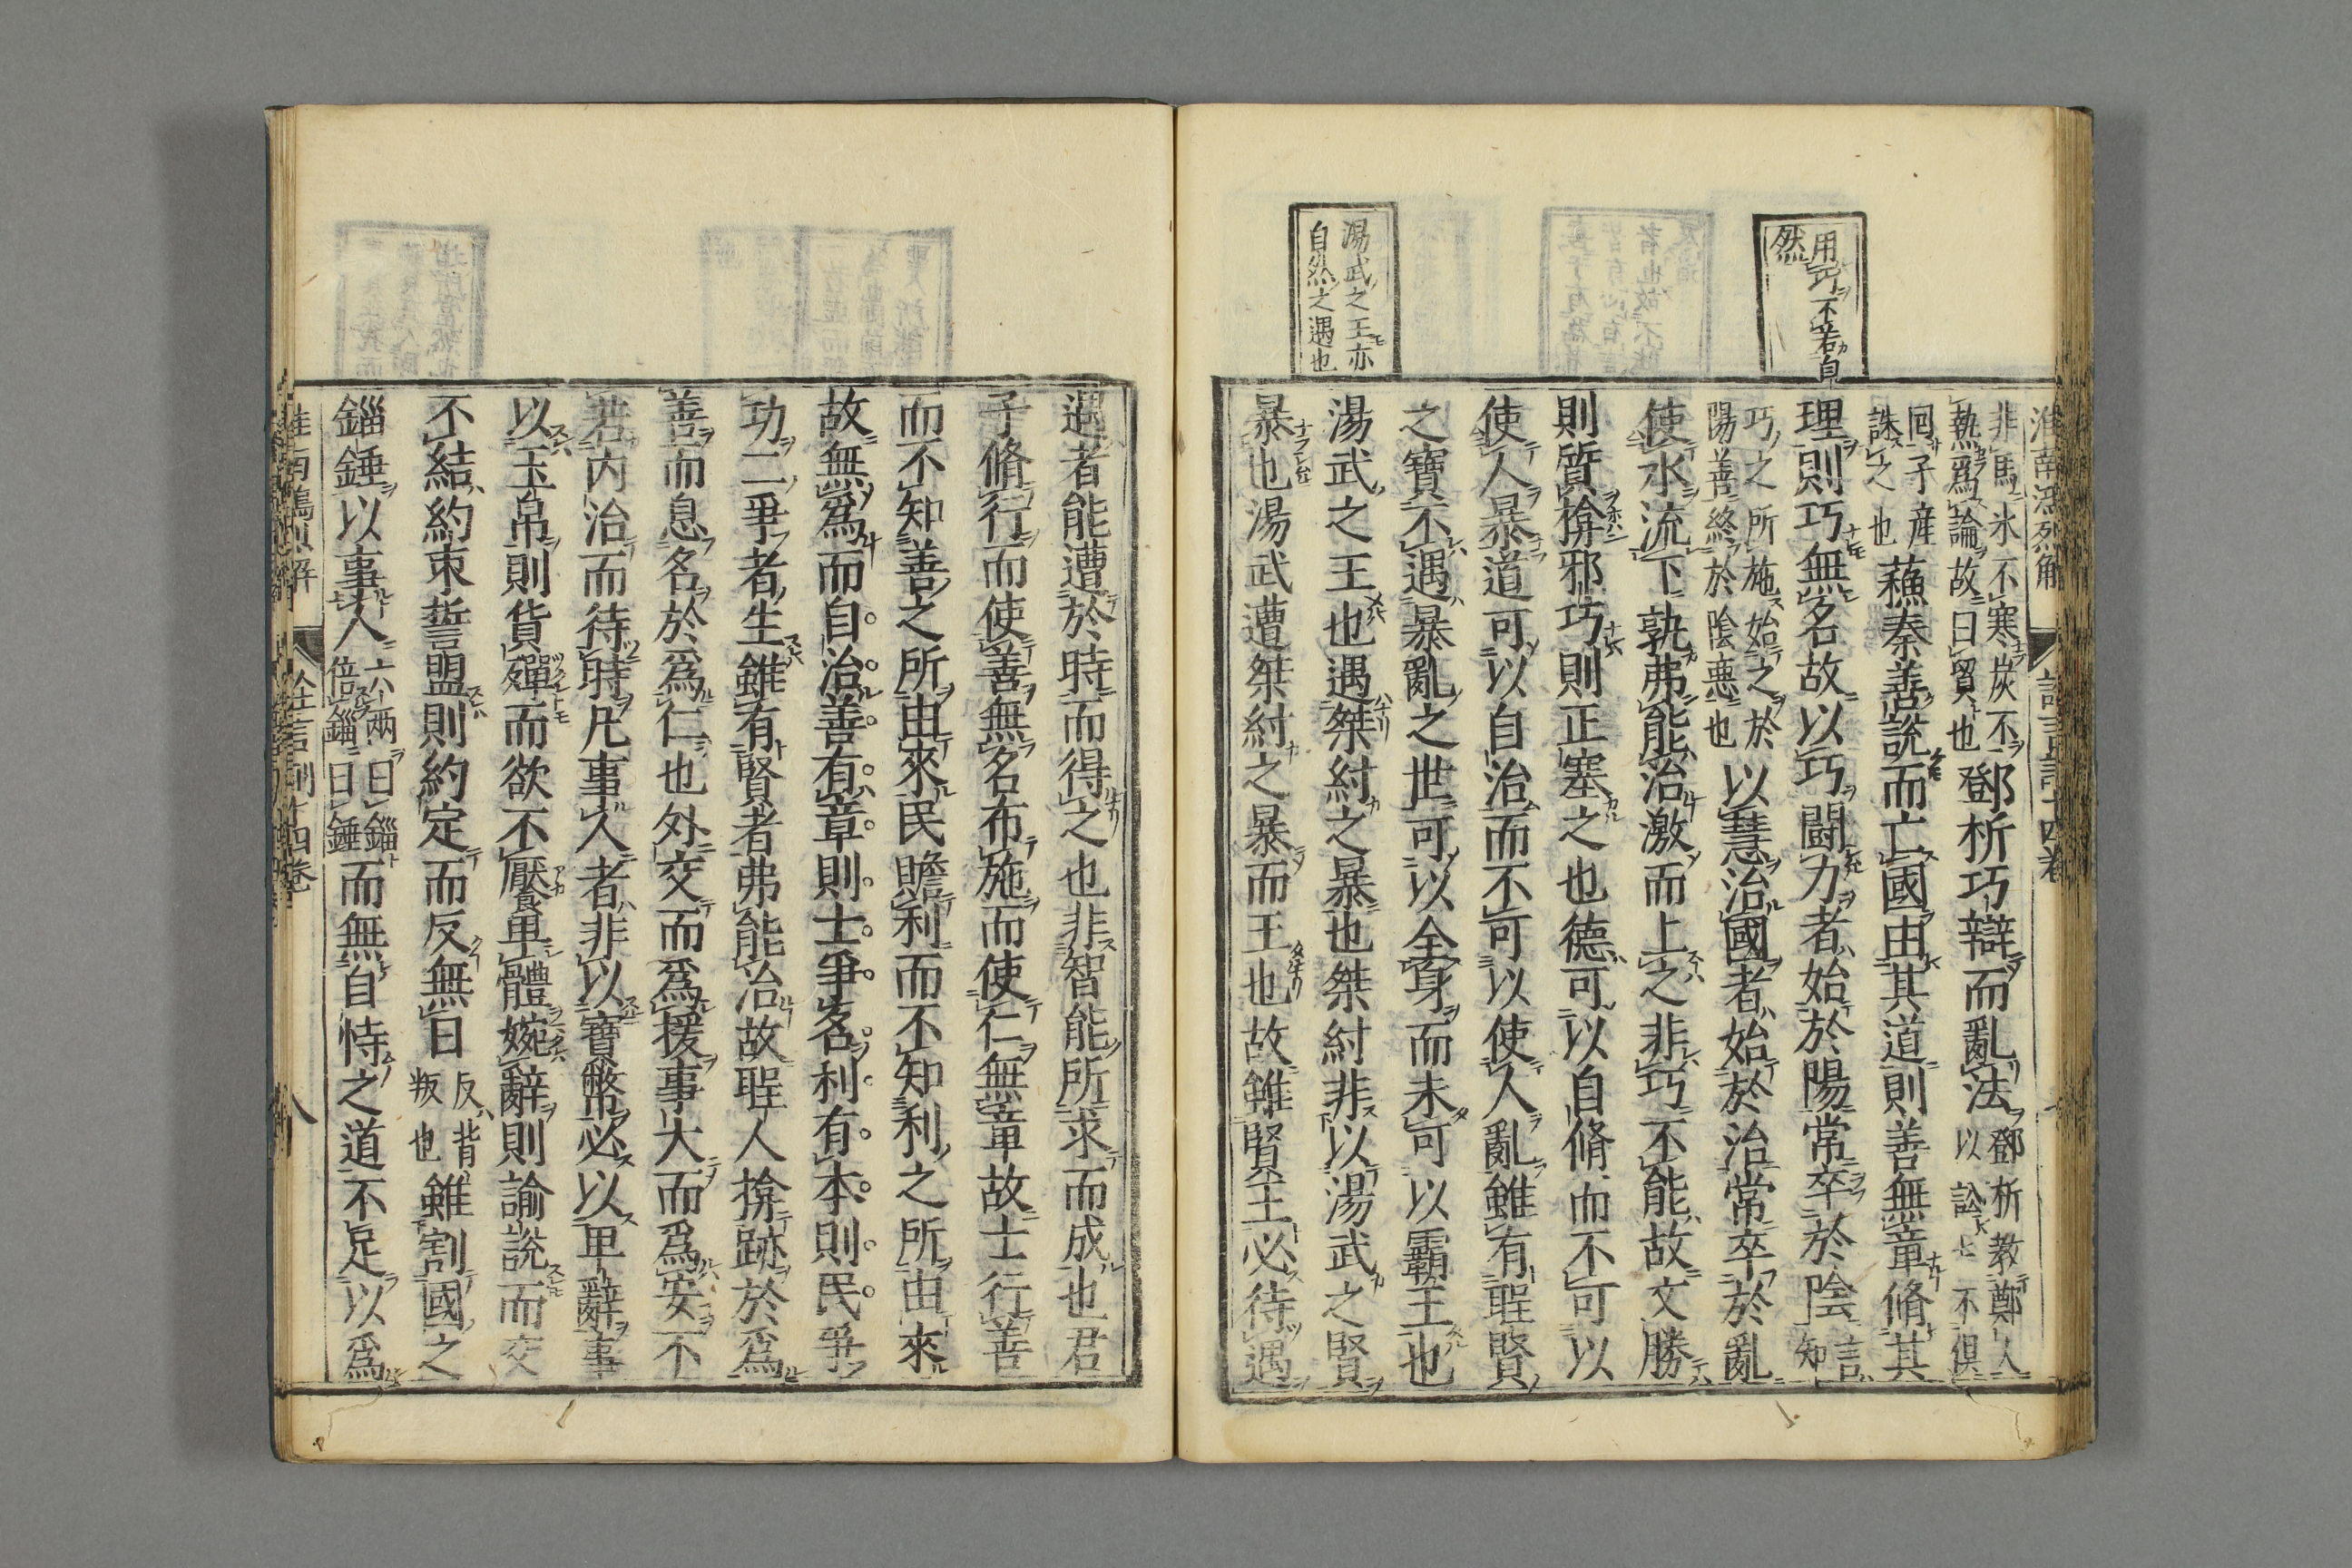 用巧不若自
然
湯武之王亦
自然之遇也
非馬氷不寒炭不
熱爲論故曰貿也
鄧析巧辯而亂法
鄧析教鄭人
以訟 不俱
回子産
誅之也
蘓秦善說而亡國由其道則善無章脩其
理則巧無名故以巧鬪力者始於陽常卒於陰
言
知
巧之所施始之於
陽善終於陰惡也
以慧治國者始於治常卒於亂
使水流下孰弗能治激而上之非巧不能故文勝
則質揜邪巧則正塞之也德可以自脩而不可以
使人暴道可以自治而不可以使人亂雖有聖賢
之寶不遇暴亂之世可以全身而未可以霸王也
湯武之王也遇桀紂之暴也桀紂非以湯武之賢
暴也湯武遭桀紂之暴而王也故雖賢王必待遇
遇者能遭於時而得之也非智能所求而成也君
子脩行而使善無名布施而使仁無章故士行善
而不知善之所由來民贍利而不知利之所由來
故無爲而自治善有章則士爭名利有本則民爭
功二爭者生雖有賢者弗能治故聖人揜跡於爲
善而息名於爲仁也外交而爲援事大而爲安不
若内治而待時凡事人者非以寶幣必以卑辭事
以玉帛則貨殫而欲不饜卑體婉辭則諭說而交
不結約束誓盟則約定而反無日
反背
叛也
雖割國之
錙錘以事人
六兩曰錙
倍錙曰錘
而無自恃之道不足以爲